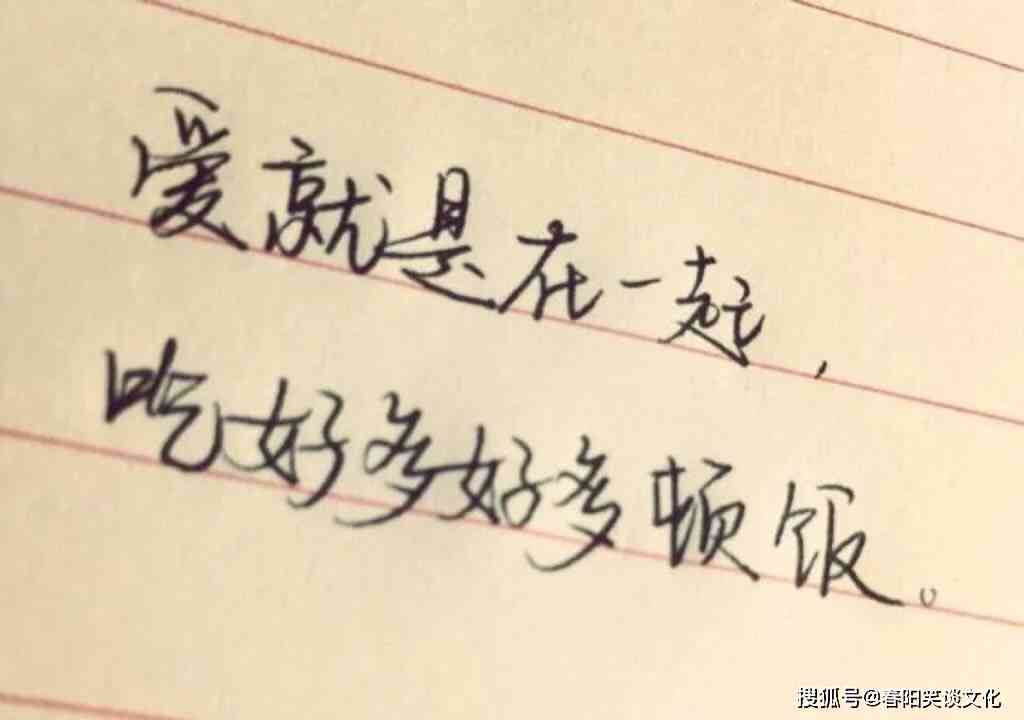 爱就是在一起，
吃好多好多顿饭。
搜狐号@春阳笑谈文化